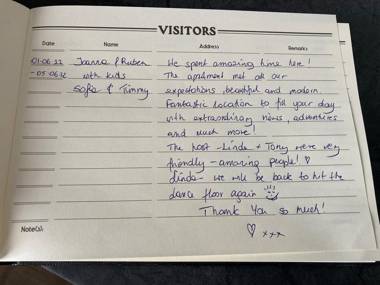 VISITORS
Date Name Address Remarks
01-06 22 Joanna & Ruben We spent amazing time here!
-05.06.22 with kids The apartment met all our
Sofie & Timmy expectations beautiful and modern
Fantastic location to fill your day
with extraordinary views, adventures
and much more!
The host - Linda + Tony were very
friendly - amazing people! ♡
Linda - we will be back to hit the
dance floor again ☺
Thank You so much!
♡ xxx
Note(s):